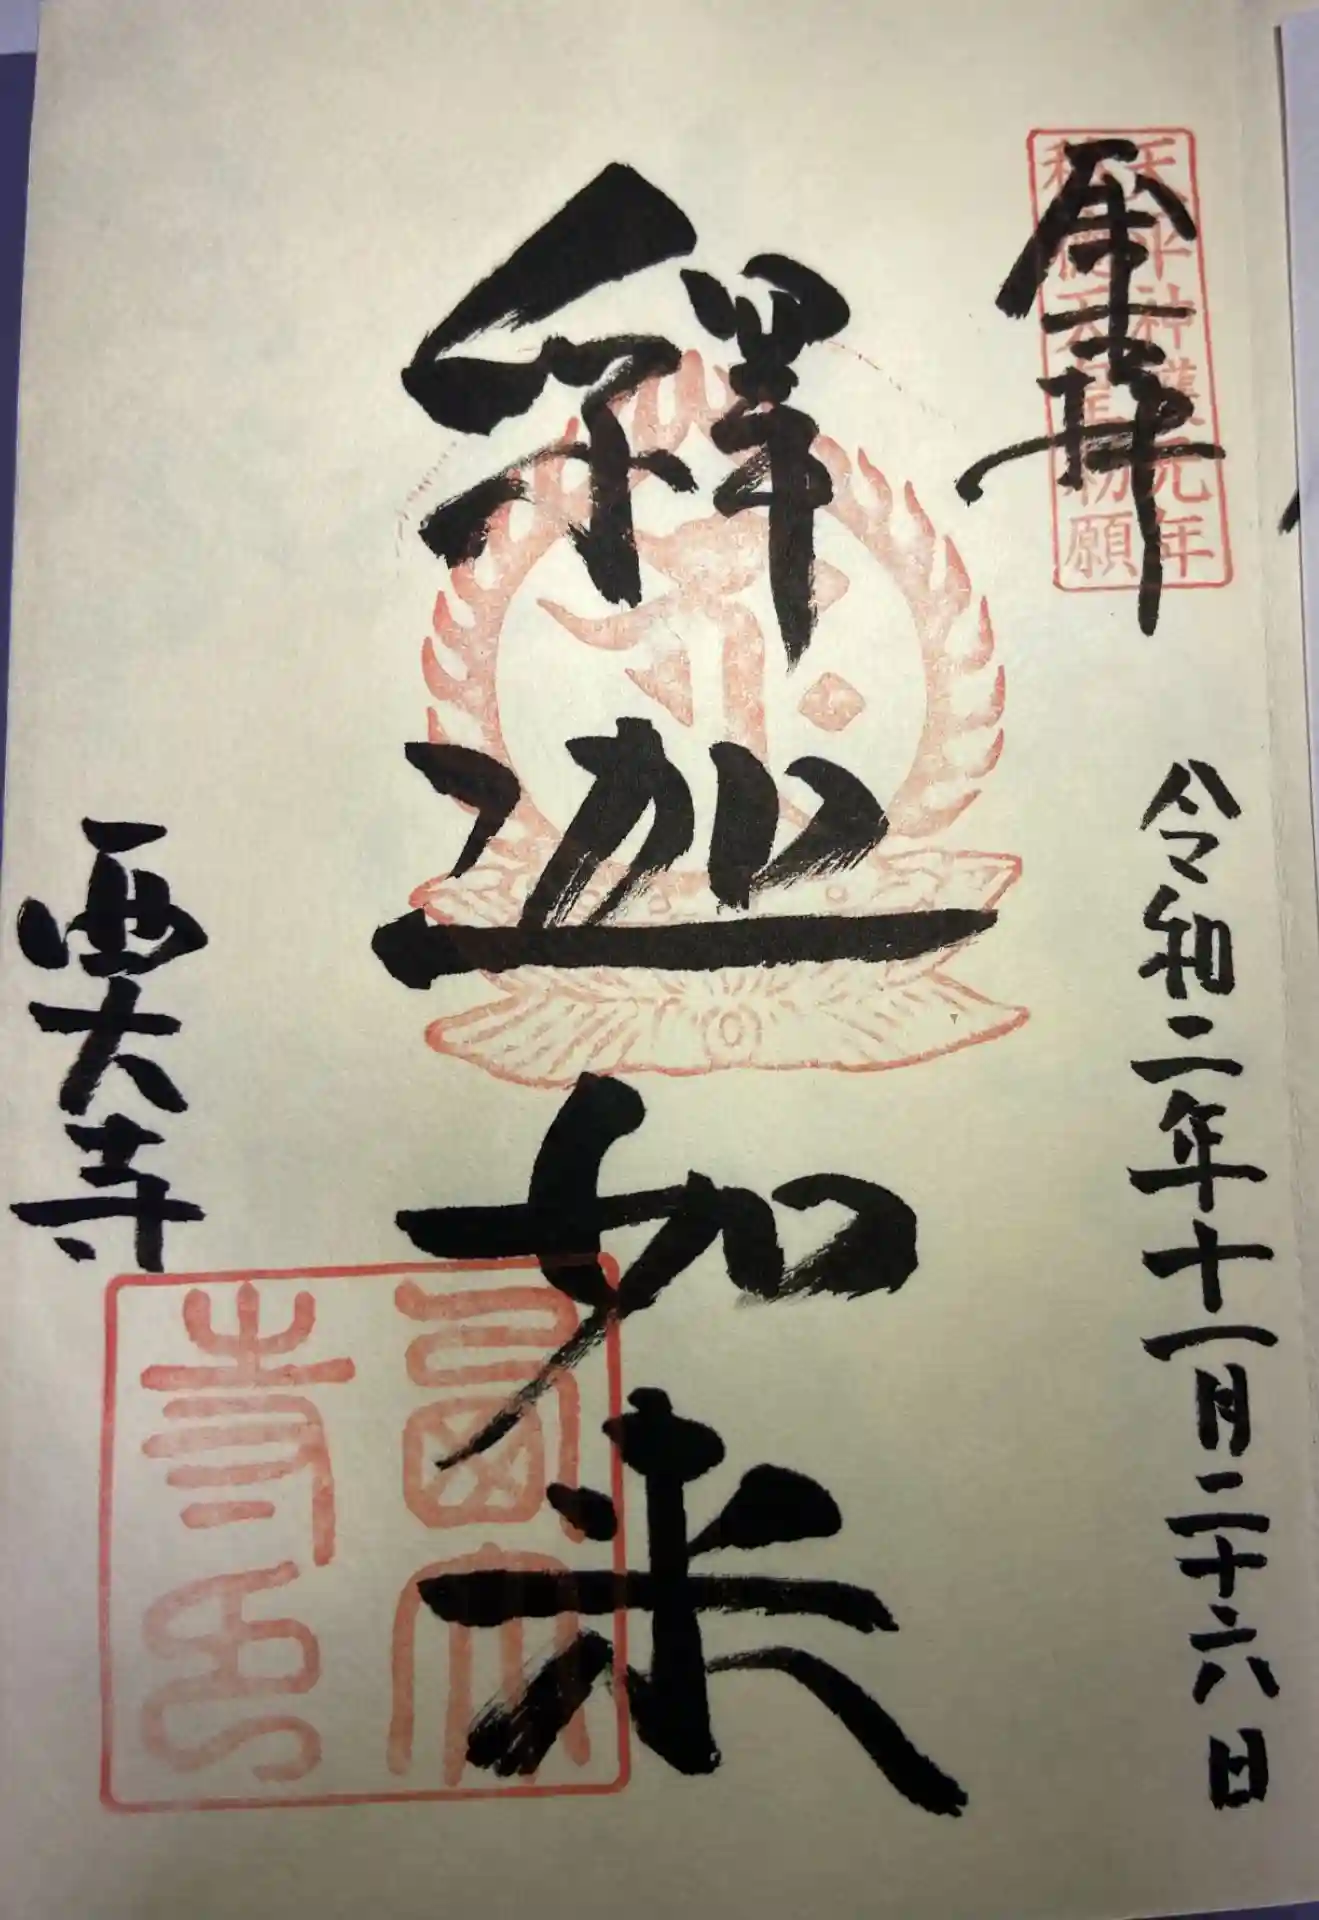 奉拝
天平神護元年
称徳天皇勅願
令和二年十一月二十六日
釈迦如来
西大寺
西大
寺印